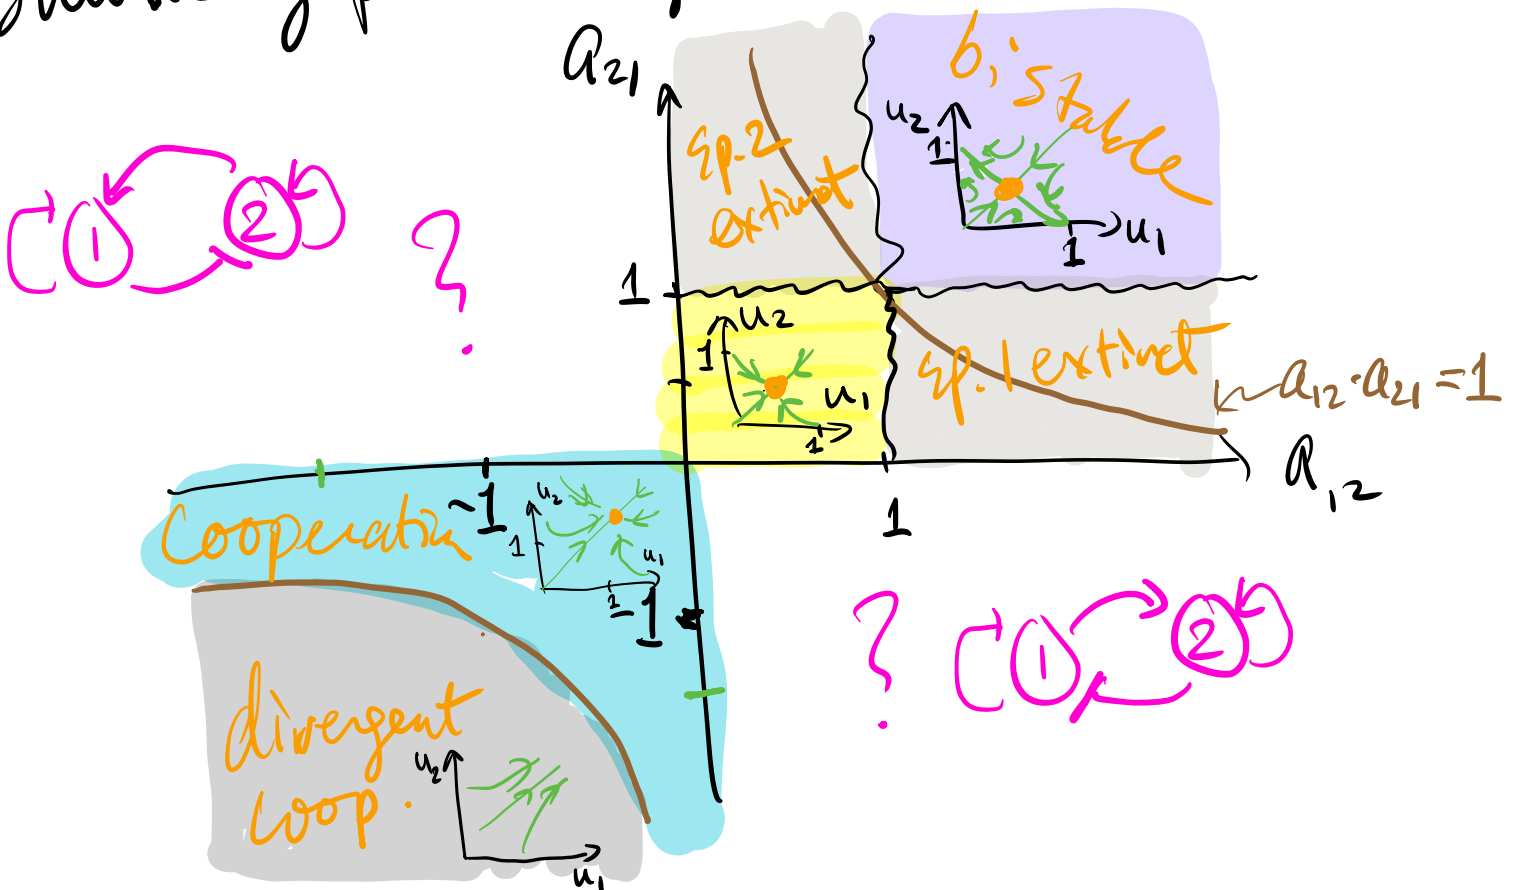 a21
sp.2
extinct
bistable
u2
1
1
u1
1
2
?
1
u2
1
u1
1
sp.1 extinct
a12·a21=1
a12
1
-1
cooperation
u2
1
u1
1
-1
?
1
2
divergent
coop.
u2
u1